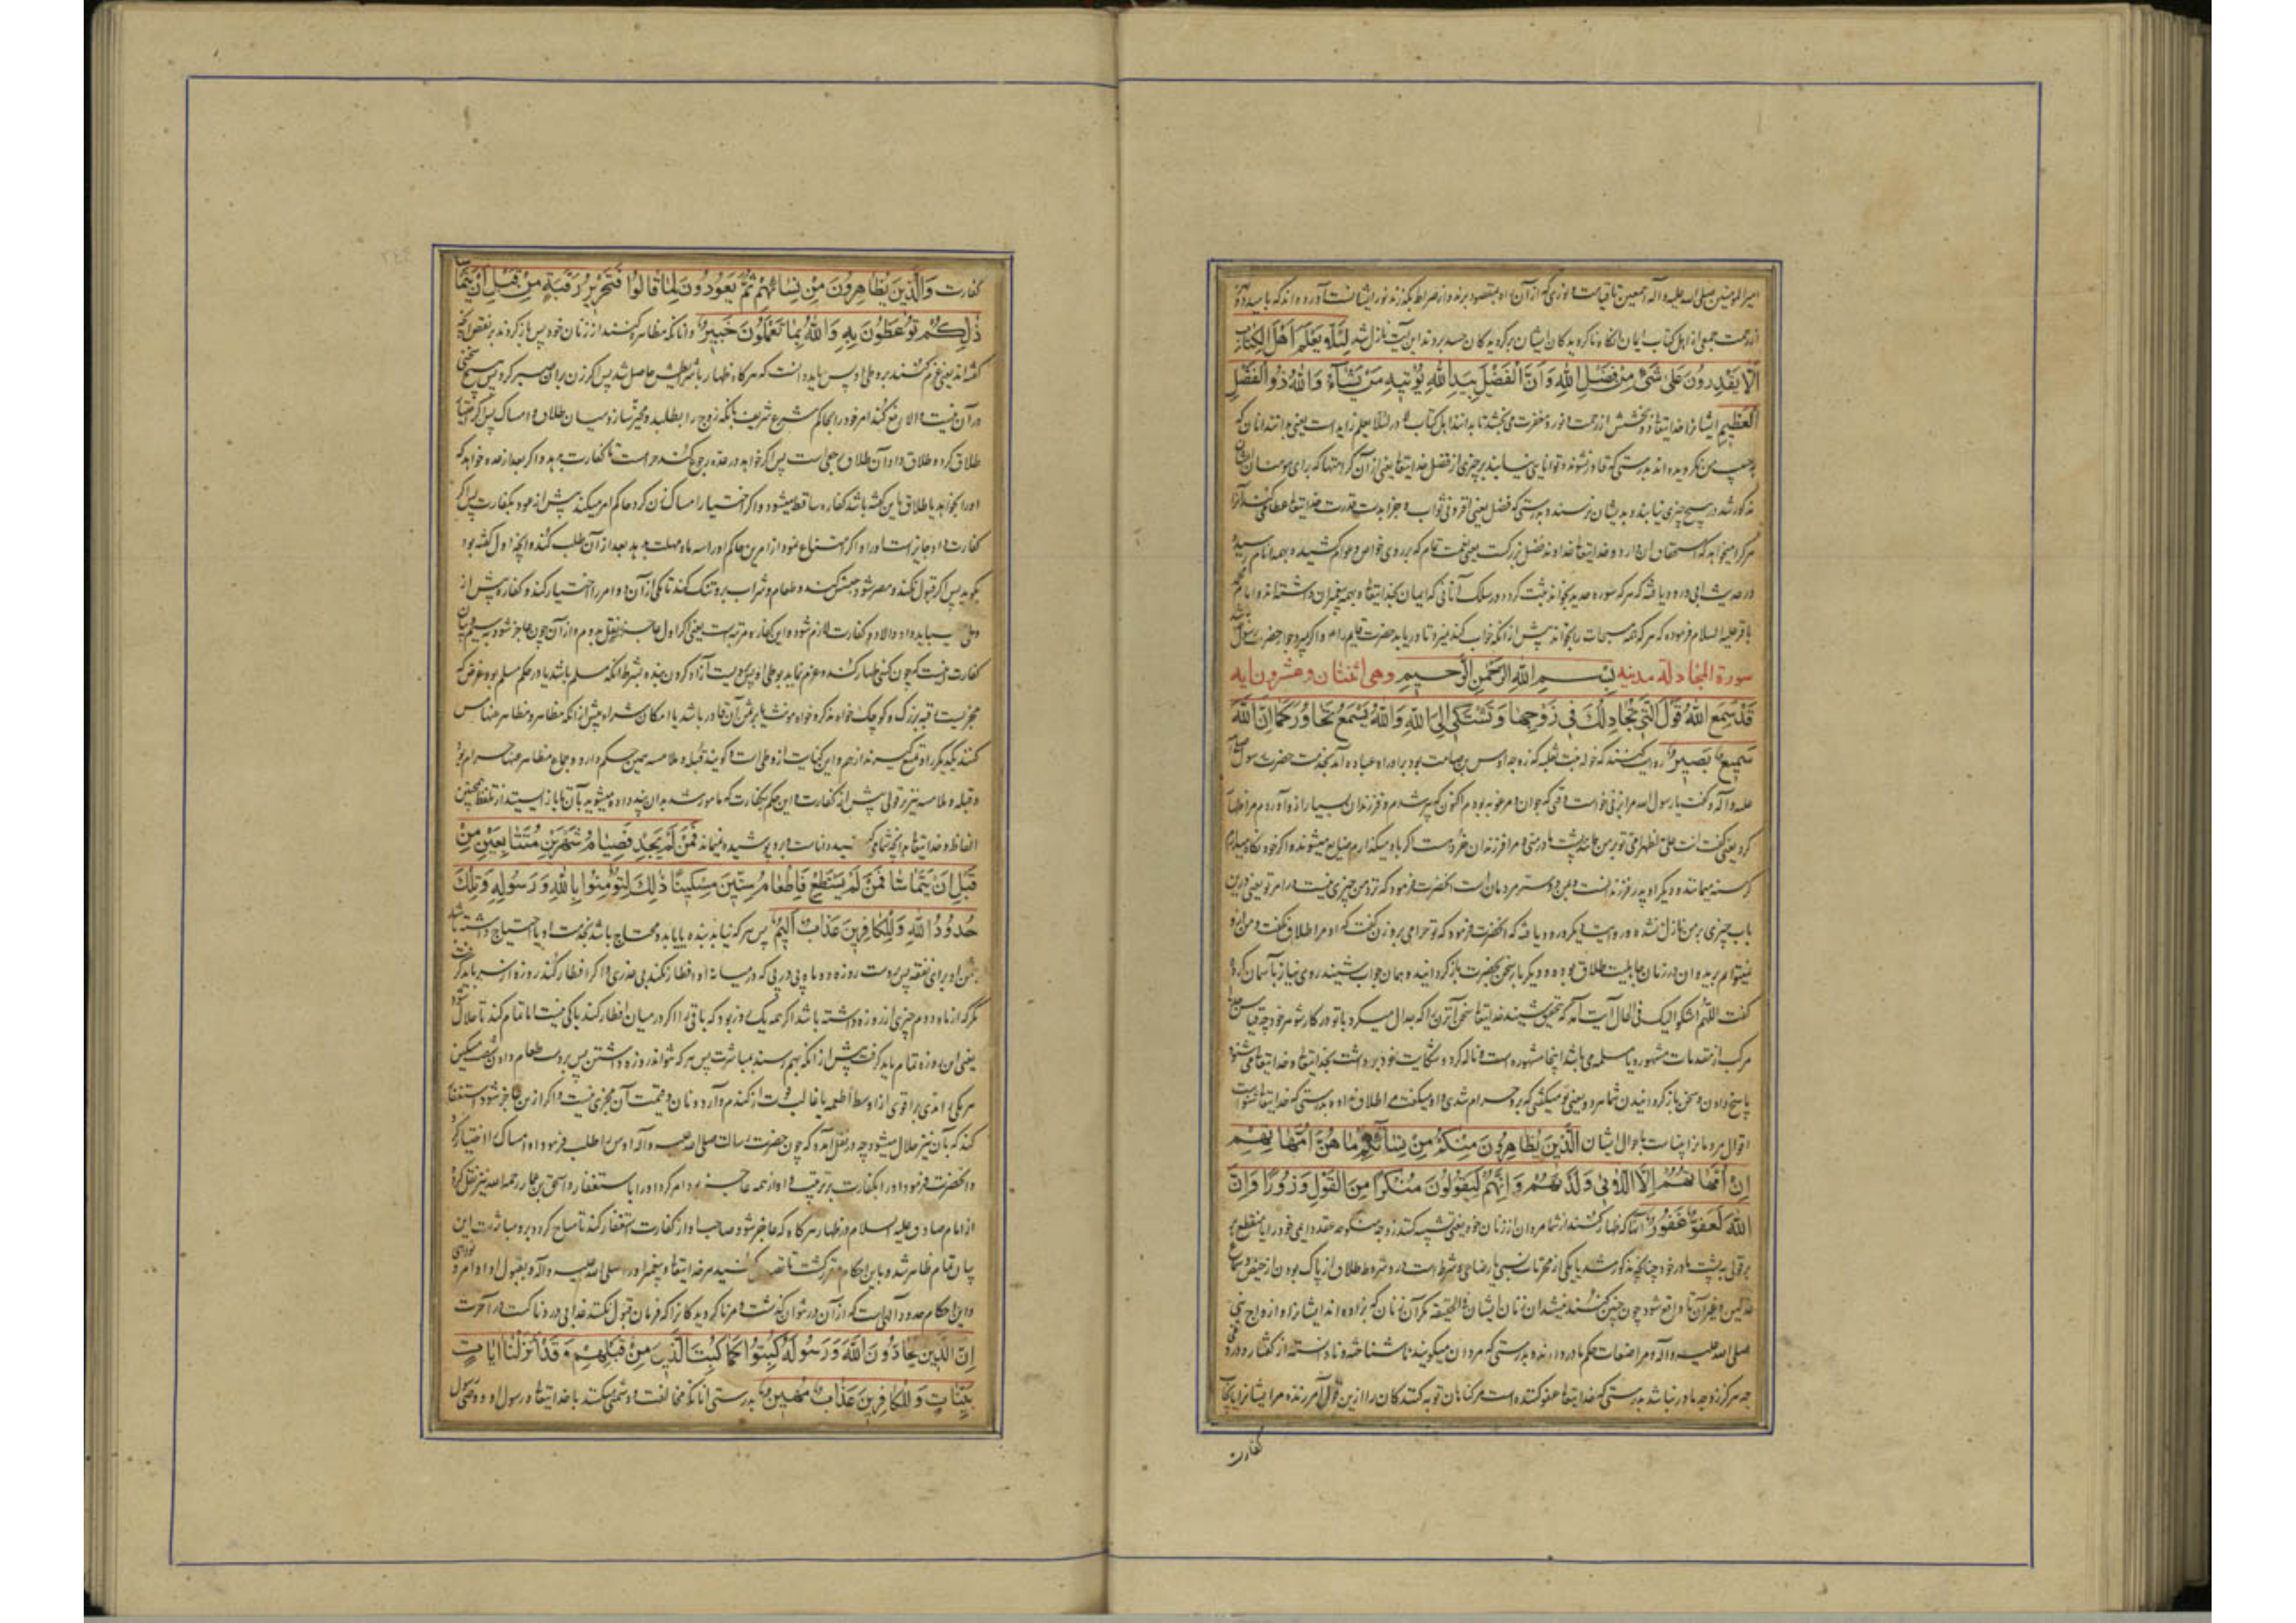 امیرالمومنین صلی الله علیه و آله اجمعین تا قیامت و نوری که از آن راه بمقصود برند و از صراط بگذرند نور ایشانست آورده اند که
از رحمت جمعی از اهل کتاب ایمان ایشان بر گرویدگان حسد بردند این آیت نازل شد لِئَلَّا يَعْلَمَ أَهْلُ الْكِتَابِ
أَلَّا يَقْدِرُونَ عَلَى شَيْءٍ مِنْ فَضْلِ اللَّهِ وَأَنَّ الْفَضْلَ بِيَدِ اللَّهِ يُؤْتِيهِ مَنْ يَشَاءُ وَاللَّهُ ذُو الْفَضْلِ
الْعَظِيمِ ایشانرا خدایتعالی و بخشش از رحمت و نور و مغفرت می بخشد تا بدانند اهل کتاب و در لئلا یعلم زاید است یعنی بدانند آنان که
نگرویده اند بدرستی که قادر نشوند و توانایی نیابند بر چیزی از فضل خدایتعالی یعنی از آن کرامتها که برای مومنان
مذکور شد هیچ چیزی نیابند و بدیشان نرسد و بدرستی که فضل یعنی افزونی ثواب و جزا بدست قدرت خدایتعالی عطا می کند آنرا
هر کرا میخواهد که استحقاق آن دارد و خدایتعالی خداوند فضل بزرگست یعنی نعمت تمام که بر روی خواص و عوام کشیده و بهمه انام رسیده
در حدیث ابی ورود یافته که هر که سوره حدید بخواند ثبت گردد در سلک آنانی که ایمان بخدایتعالی و بهمه پیغمبران داشته اند و امام
باقر علیه السلام فرموده که هر که همه مسبحات را بخواند پیش از آنکه خواب کند نمیرد تا دریابد حضرت قایم را و اگر بمیرد در جوار حضرت رسول
سورة المجادلة مدنیه بِسْمِ اللَّهِ الرَّحْمَنِ الرَّحِيمِ وهی اثنتان وعشرون آیه
قَدْ سَمِعَ اللَّهُ قَوْلَ الَّتِي تُجَادِلُكَ فِي زَوْجِهَا وَتَشْتَكِي إِلَى اللَّهِ وَاللَّهُ يَسْمَعُ تَحَاوُرَكُمَا إِنَّ اللَّهَ
سَمِيعٌ بَصِيرٌ روایت کنند که خوله بنت ثعلبه که زوجه اوس بن صامت بود برادر عباده آمد بخدمت حضرت رسول
علیه و آله و گفت یا رسول الله مرا بزنی خواست وقتی که جوان و مرغوبه بودم اکنون که پیر شدم و فرزندان بسیار از او آوردم مرا ظهار
کرد یعنی گفت انت علی کظهر امی تو بر من مانند پشت مادر منی و مرا فرزندان خردست اگر باو میگذارم ضایع میشوند و اگر خود نگاه میدارم
گرسنه میمانند و دیگر او پدر فرزندانست و دوستر مردمان است آنحضرت فرمود که نزد من چیزی نیست در امر تو یعنی درین
باب چیزی بر من نازل نشده و روایت دیگر ورود یافته که آنحضرت فرمود که تو حرامی بر وی زن گفت که او مرا طلاق نگفت و من از او
نمیتوانم برید و آن در زمان جاهلیت طلاق بوده و دیگر بار سخن بحضرت باز گردانید و همان جواب شنید روی نیاز بآسمان کرد
گفت اللهم اشکو الیک فی الحال آیت آمد که بتحقیق شنید خدایتعالی سخن آن زن را که جدال میکرد با تو در کار شوهر خود چه قیاس
مرکب از مقدمات مشهوره یا مسلمه می باشد اینجا مشهوره است و ناله کرد و شکایت خود برداشت بخدایتعالی و خدایتعالی می شنود
پاسخ دادن و سخن باز گردانیدن شما هر دو یعنی تو میگفتی که بر او حرام شدی و او میگفت مرا طلاق نداده بدرستی که خدایتعالی شنواست
اقوال مردمانرا بیناست باحوال ایشان الَّذِينَ يُظَاهِرُونَ مِنْكُمْ مِنْ نِسَائِهِمْ مَا هُنَّ أُمَّهَاتِهِمْ
إِنْ أُمَّهَاتُهُمْ إِلَّا اللَّائِي وَلَدْنَهُمْ وَإِنَّهُمْ لَيَقُولُونَ مُنْكَرًا مِنَ الْقَوْلِ وَزُورًا وَإِنَّ
اللَّهَ لَعَفُوٌّ غَفُورٌ آنانکه ظهار کنند از شما مردان از زنان خود یعنی تشبیه کنند زوجه منکوحه بعقد دایمی خود را یا منقطع بر
قولی به پشت مادر خود چنانچه مذکور شد یا یکی از محرمات نسبی یا رضاعی و شرط است در او شروط طلاق از پاک بودن از حیض و سماع
عدلین و غیر آن تا واقع شود چون چنین کنند نمیشدان زنان ایشان فی الحقیقه مگر آن زنان که بزاده اند ایشانرا و ازواج نبی
صلی الله علیه و آله و مراضعات حکم مادر دارند و بدرستی که مردان میگویند ناشناخته و نادانسته از گفتار و دروغ
چه هرگز زوجه مادر نباشد بدرستی که خدایتعالی عفو کننده است مر گناهان توبه کنندگان را ازین قول آمرزنده مر ایشانرا بایجاب
کفارت
کفارت وَالَّذِينَ يُظَاهِرُونَ مِنْ نِسَائِهِمْ ثُمَّ يَعُودُونَ لِمَا قَالُوا فَتَحْرِيرُ رَقَبَةٍ مِنْ قَبْلِ أَنْ يَتَمَاسَّا
ذَلِكُمْ تُوعَظُونَ بِهِ وَاللَّهُ بِمَا تَعْمَلُونَ خَبِيرٌ و آنانکه مظاهره کنند از زنان خود پس باز گردند بر نقض آنچه
گفته اند یعنی عزم کنند بر وطی او پس باید دانست که هر گاه ظهار با شرایطش حاصل شد پس اگر زن بر آن صبر کرد پس هیچ سخنی
در آن نیست و الا رفع کند امر خود را بحاکم شرع شریف بآنکه زوج را بطلبد و مخیر سازد میان طلاق و امساک پس اگر اختیار
طلاق کرد و طلاق داد آن طلاق رجعی است پس اگر خواهد در عده رجوع کند حرام است تا کفارت بدهد و اگر بعد از عده خواهد که
او را بخواهد یا طلاق باین گفته باشد کفاره ساقط میشود و اگر اختیار امساک زن کرد حاکم امر میکند پیش از عود بکفارت پس اگر
کفارت داد جایز است او را و اگر امتناع نمود از امرین حاکم او را سه ماه مهلت بدهد بعد از آن طلب کند و آنچه اول گفته بود
بگوید پس اگر قبول نکند و مصر شود حبس کند و طعام و شراب برو تنگ کند تا یکی از آن دو امر را اختیار کند و کفاره پیش از
وطی میباید داد و الا دو کفارت لازم شود و این کفاره مرتبه است یعنی اگر از اول عاجز شود نقل بدوم و از آن چون عاجز شود به سیم
کفارت اینست که چون کسی ظهار کند و عزم نماید بوطی او پس برویست آزاد کردن بنده بشرط آنکه مسلم باشد یا در حکم مسلم
رقبه بزرگ و کوچک خواه مذکر و خواه مونث یا بر ثمن آن قادر باشد با امکان شراء پیش از آنکه مظاهر و مظاهر منها مس
کنند یکدیگر را و تمتع گیرند از هم و این کنایت از وطی است و گویند قبله و ملامسه همین حکم دارد و جماع مظاهر منها حرام بود
و قبله و ملامسه نیز بر قولی پیش از کفارت و این حکم بکفارت که مامور شدید بدان پند داده میشوید بآن تا باز ایستید از تلفظ بچنین
الفاظ و خدایتعالی بآنچه شما میکنید داناست و برو پوشیده نمیماند فَمَنْ لَمْ يَجِدْ فَصِيَامُ شَهْرَيْنِ مُتَتَابِعَيْنِ مِنْ
قَبْلِ أَنْ يَتَمَاسَّا فَمَنْ لَمْ يَسْتَطِعْ فَإِطْعَامُ سِتِّينَ مِسْكِينًا ذَلِكَ لِتُؤْمِنُوا بِاللَّهِ وَرَسُولِهِ وَتِلْكَ
حُدُودُ اللَّهِ وَلِلْكَافِرِينَ عَذَابٌ أَلِيمٌ پس هر که نیابد بنده یا یابد و محتاج باشد بخدمت او یا احتیاج داشته باشد
بثمن او برای نفقه پس بروست روزه دو ماه پی در پی که در میانه او افطار نکند بی عذری و اگر افطار کند روزه از سر باید گرفت
مگر که از ماه دوم چیزی از روزه داشته باشد اگر همه یک روز بود که باقی را اگر در میان افطار کند باکی نیست اما تمام کند تا حلال شود
یعنی این روزه تمام باید گرفت پیش از آنکه بهم رسند بمباشرت پس هر که نتواند روزه داشتن پس بروست طعام دادن شصت مسکین
هر یکی را مدی بر اقوی از اوسط اطعمه یا غالب قوت از گندم و آرد و نان و قیمت آن مجزی نیست و اگر ازین عاجز شود استغفار
کند که بآن نیز حلال میشود چه در نقل آمده که چون حضرت رسالت صلی الله علیه و آله اوس را طلب فرمود او امساک را اختیار کرد
و آنحضرت فرمود او را بکفارت بر ترتیب و او از همه عاجز بود امر کرد او را باستغفار و اسحق بن عمار رحمه الله نیز نقل کرده
از امام صادق علیه السلام در ظهار هر گاه که عاجز شود صاحب او از کفارت استغفار کند تا مباح گردد برو مباشرت این
بیان تمام ظاهر شد و باین احکام مقرر گشت تا تصدیق کنید مر خدایتعالی و پیغمبر او را صلی الله علیه و آله و بقبول اوامر و نواهی
و این احکام حدود آلهی است که از آن در نتوان گذشت و مر ناگرویدگانرا که فرمان قبول نکنند عذابی دردناکست در آخرت
إِنَّ الَّذِينَ يُحَادُّونَ اللَّهَ وَرَسُولَهُ كُبِتُوا كَمَا كُبِتَ الَّذِينَ مِنْ قَبْلِهِمْ وَقَدْ أَنْزَلْنَا آيَاتٍ
بَيِّنَاتٍ وَلِلْكَافِرِينَ عَذَابٌ مُهِينٌ بدرستی آنانکه مخالفت و دشمنی میکنند با خدایتعالی و رسول او